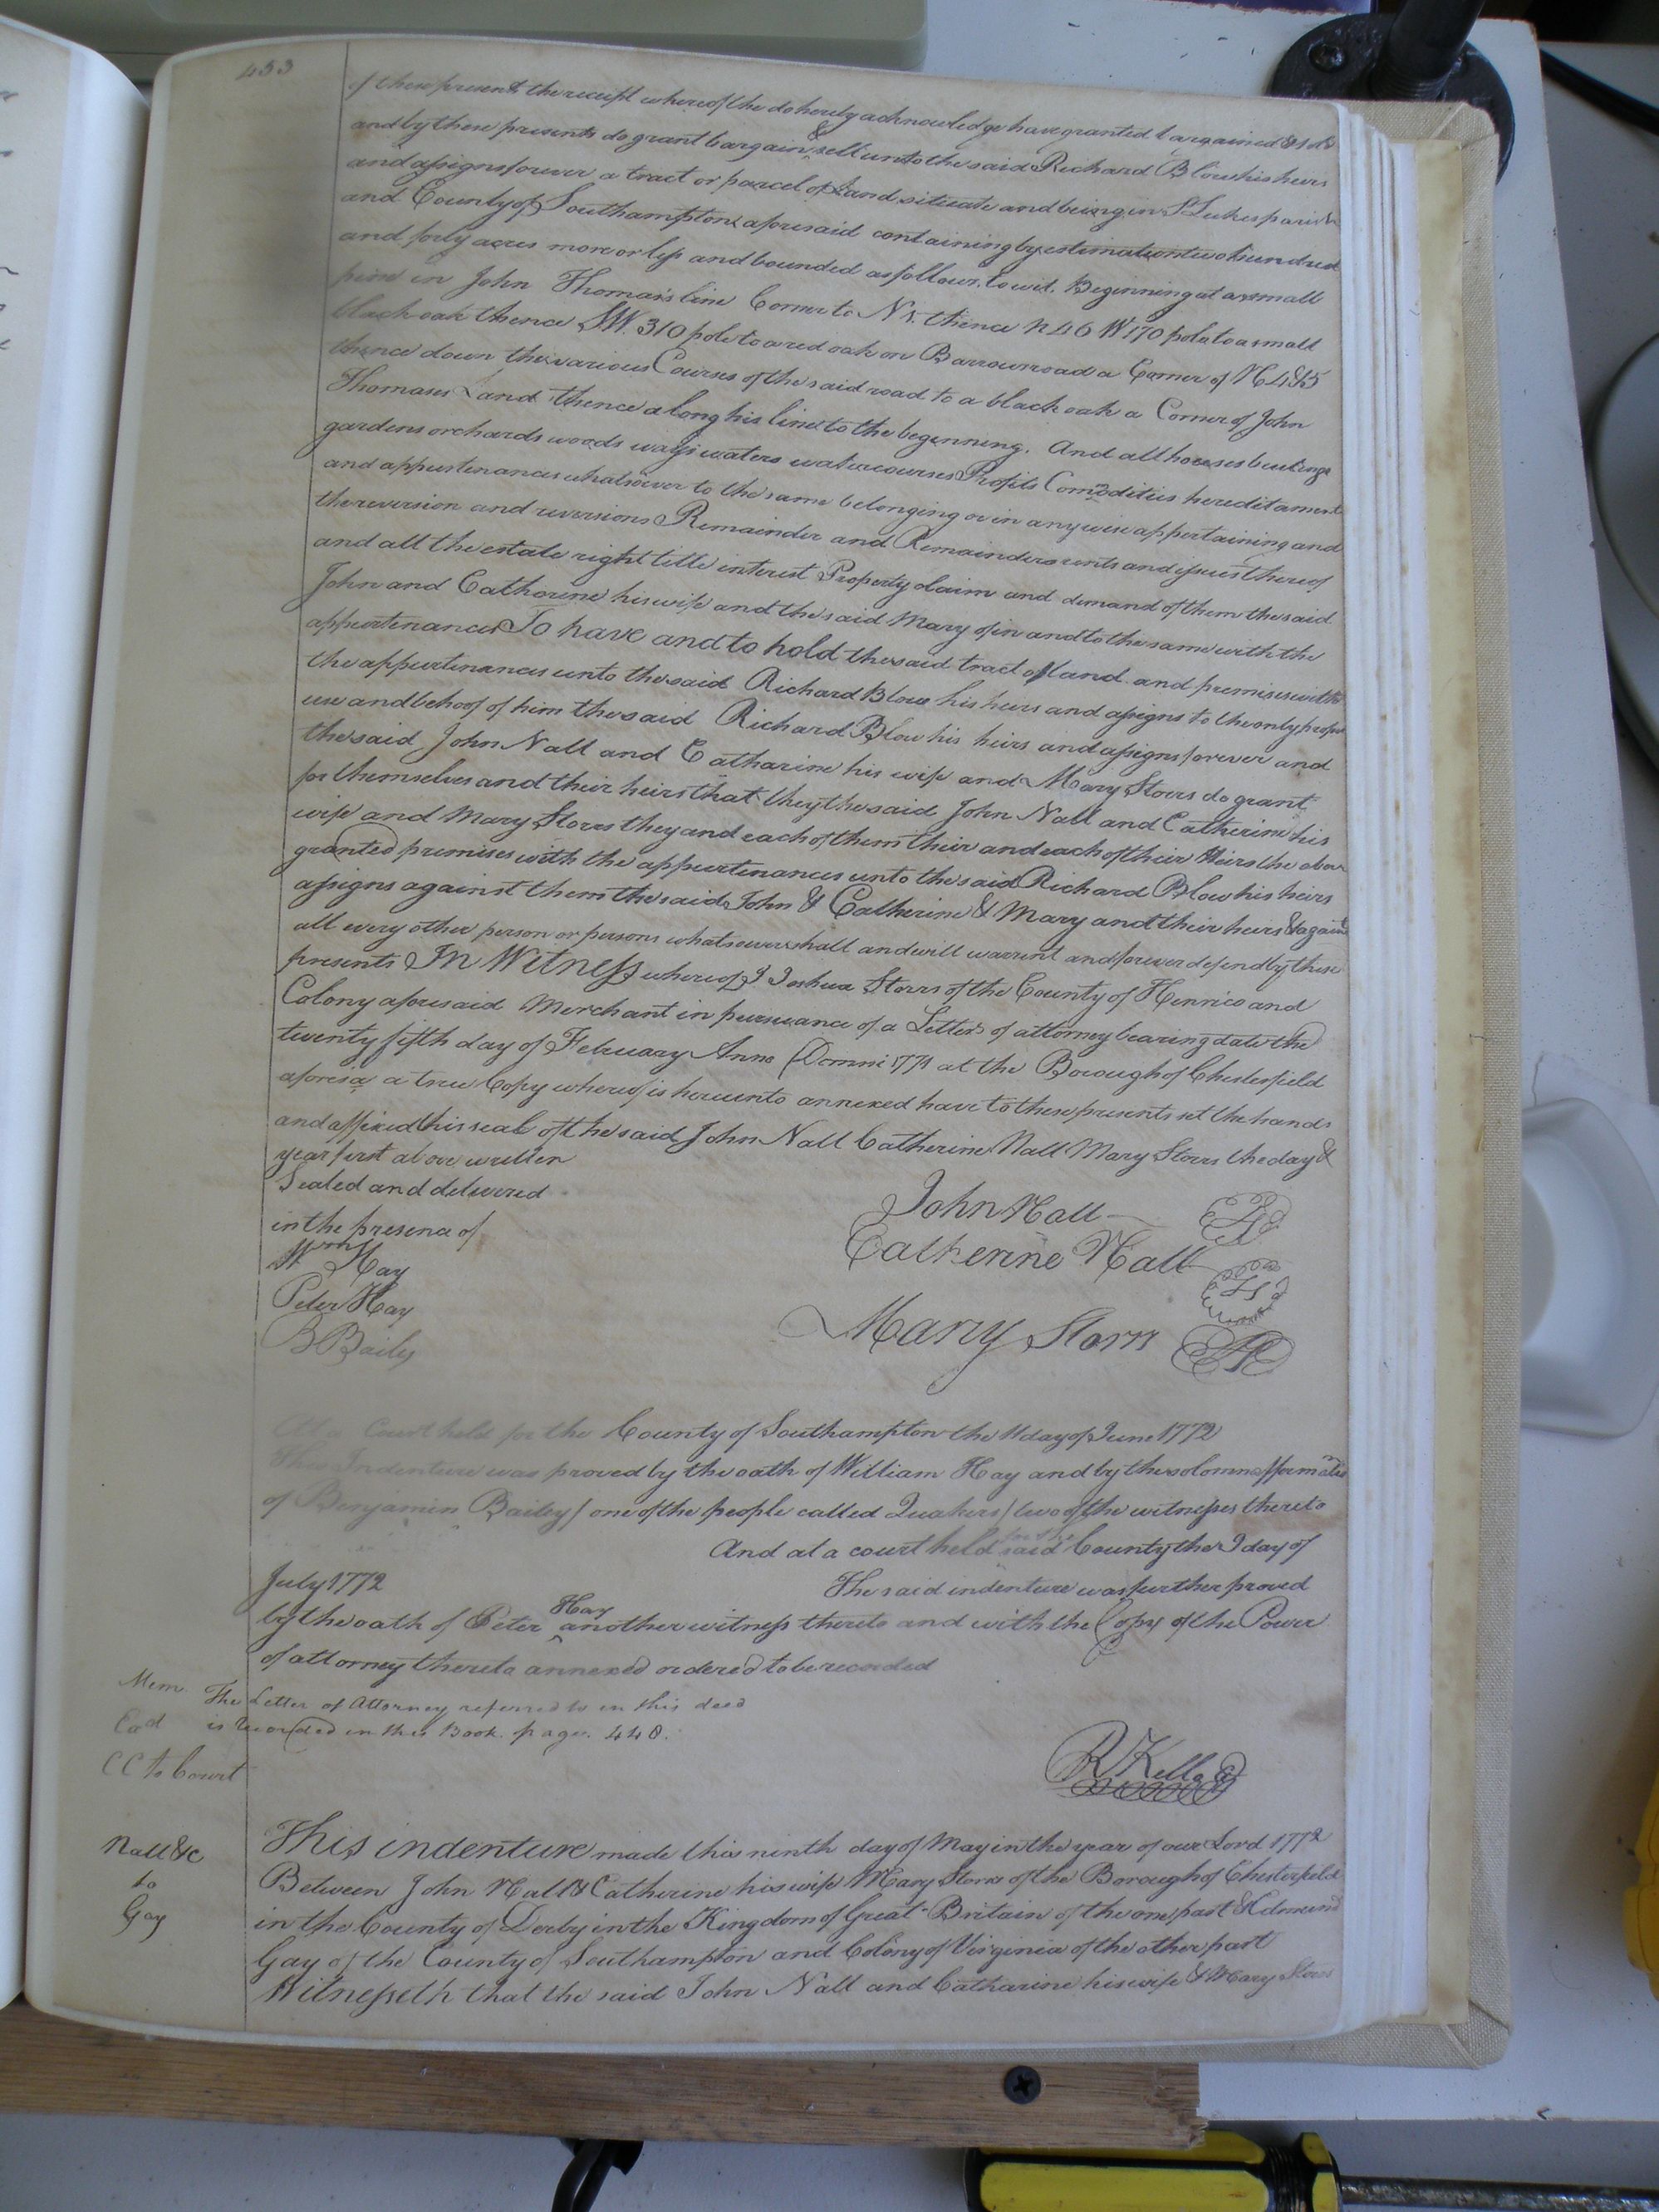 453
of these presents the receipt whereof the do hereby acknowledge have granted bargained & sold
and by these presents do grant bargain & sell unto the said Richard Blow his heirs
and assigns forever a tract or parcel of Land situate and being in St Lukes parish
and County of Southampton aforesaid containing by estimation two hundred
and forty acres more or less and bounded as follows. to wit. Beginning at a small
pine in John Thomas's line Corner to No 5. thence N 40 W 170 pole to a small
black oak thence SW. 310 pole to a red oak on Barrow road a Corner of No 4 & 5
thence down the various Courses of the said road to a black oak a Corner of John
Thomases Land thence along his line to the beginning. And all houses buildings
gardens orchards woods ways waters watercourses Profits Comodities hereditament
and appurtenances whatsoever to the same belonging or in any wise appertaining and
the reversion and reversions Remainder and Remainders rents and issues thereof
and all the estate right title interest Property claim and demand of them the said
John and Catharine his wife and the said Mary of in and to the same with the
appurtenances To have and to hold the said tract of land and premises with
the appurtenances unto the said Richard Blow his heirs and assigns to the only proper
use and behoof of him the said Richard Blow his heirs and assigns forever and
the said John Nall and Catharine his wife and Mary Storrs do grant
for themselves and their heirs that they the said John Nall and Catherine his
wife and Mary Storrs they and each of them their and each of their Heirs the above
granted premises with the appurtenances unto the said Richard Blow his heirs
assigns against them the said John & Catherine & Mary and their heirs & against
all every other person or persons whatsoever shall and will warrent and forever defend by these
presents In Witness whereof I Joshua Storrs of the County of Henrico and
Colony aforesaid Merchant in pursuance of a Letter of attorney bearing date the
twenty fifth day of February Anno Domini 1771 at the Borough of Chesterfield
aforesd a true Copy whereof is hereunto annexed have to these presents set the hands
and affixed this seal of the said John Nall Catherine Nall Mary Storrs the day &
year first above written
Sealed and delivered
in the presence of
Wm Hay
Peter Hay
B Baily
John Nall
Catherine Nall
Mary Storrs
At a Court held for the County of Southampton the 11 day of June 1772
This Indenture was proved by the oath of William Hay and by the solomn affirmation
of Benjamin Bailey / one of the people called Quakers / two of the witnesses thereto
And at a court held for the said County the 9 day of
July 1772 The said indenture was further proved
by the oath of Peter Hay another witness thereto and with the Copy of the Power
of attorney thereto annexed ordered to be recorded
Mem. The Letter of Attorney referred to in this deed
is recorded in this Book. page. 448.
Exd
CC to Court
R Kello
Nall &c
to
Gay
This indenture made this ninth day of May in the year of our Lord 1772
Between John Nall & Catherine his wife Mary Storrs of the Borough of Chesterfield
in the County of Derby in the Kingdom of Great Britain of the one part & Edmund
Gay of the County of Southampton and Colony of Virginia of the other part
Witnesseth that the said John Nall and Catharine his wife & Mary Storrs